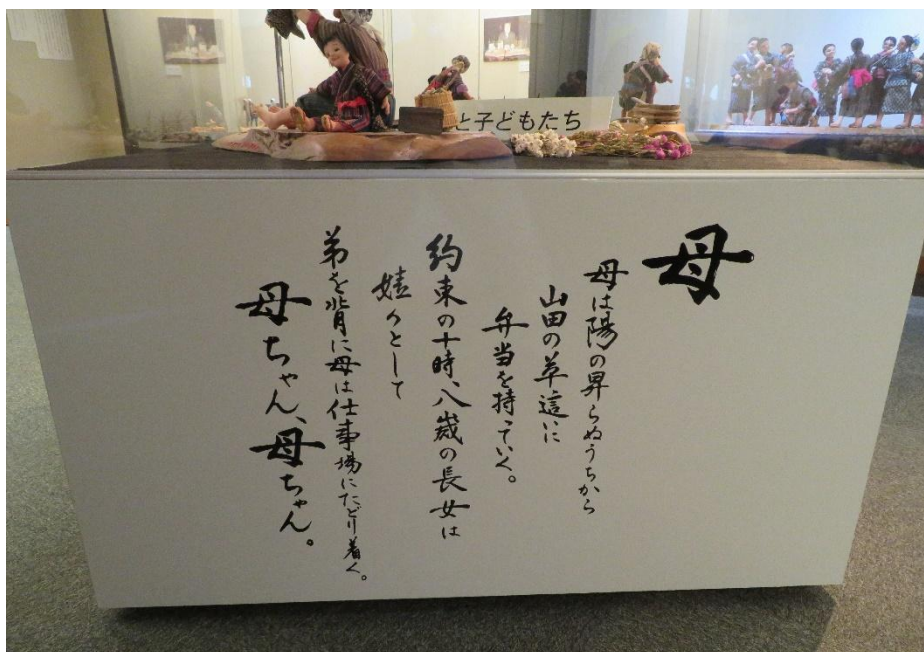 と子どもたち
母
母は陽の昇らぬうちから
山田の草這に
弁当を持っていく。
約束の十時、八歳の長女は
嬉々として
弟を背に母は仕事場にたどり着く。
母ちゃん、母ちゃん。